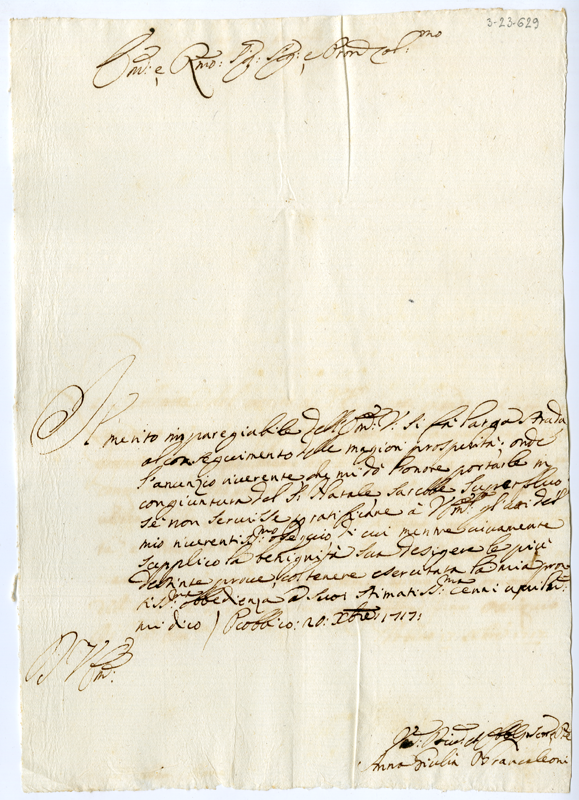 3-23-629
Em:º e Rmo: Sig: Sig: e Pron Col:mo
Il merito impareggiabile dell'Em:ª V: S: fà larga strada
al conseguimento delle magiori prosperità, onde
l'anunzio riverente che mi dò l'onore portarle in
congiuntura del S: Natale sarebbe superfluo
se non servisse p ratificare à V Em:ª gl'atti del
mio riverentiss:mo ossequio di cui mentre vivamente
supplico la benignità sua
distinte prove sostenere esercitata la mia pron
tiss:ma obbedienza a suoi stimatiss:mi cenni
mi dico / Piobbico: 20: Xbre 1717:
D: V: Em:
Anna Giulia Brancaleoni